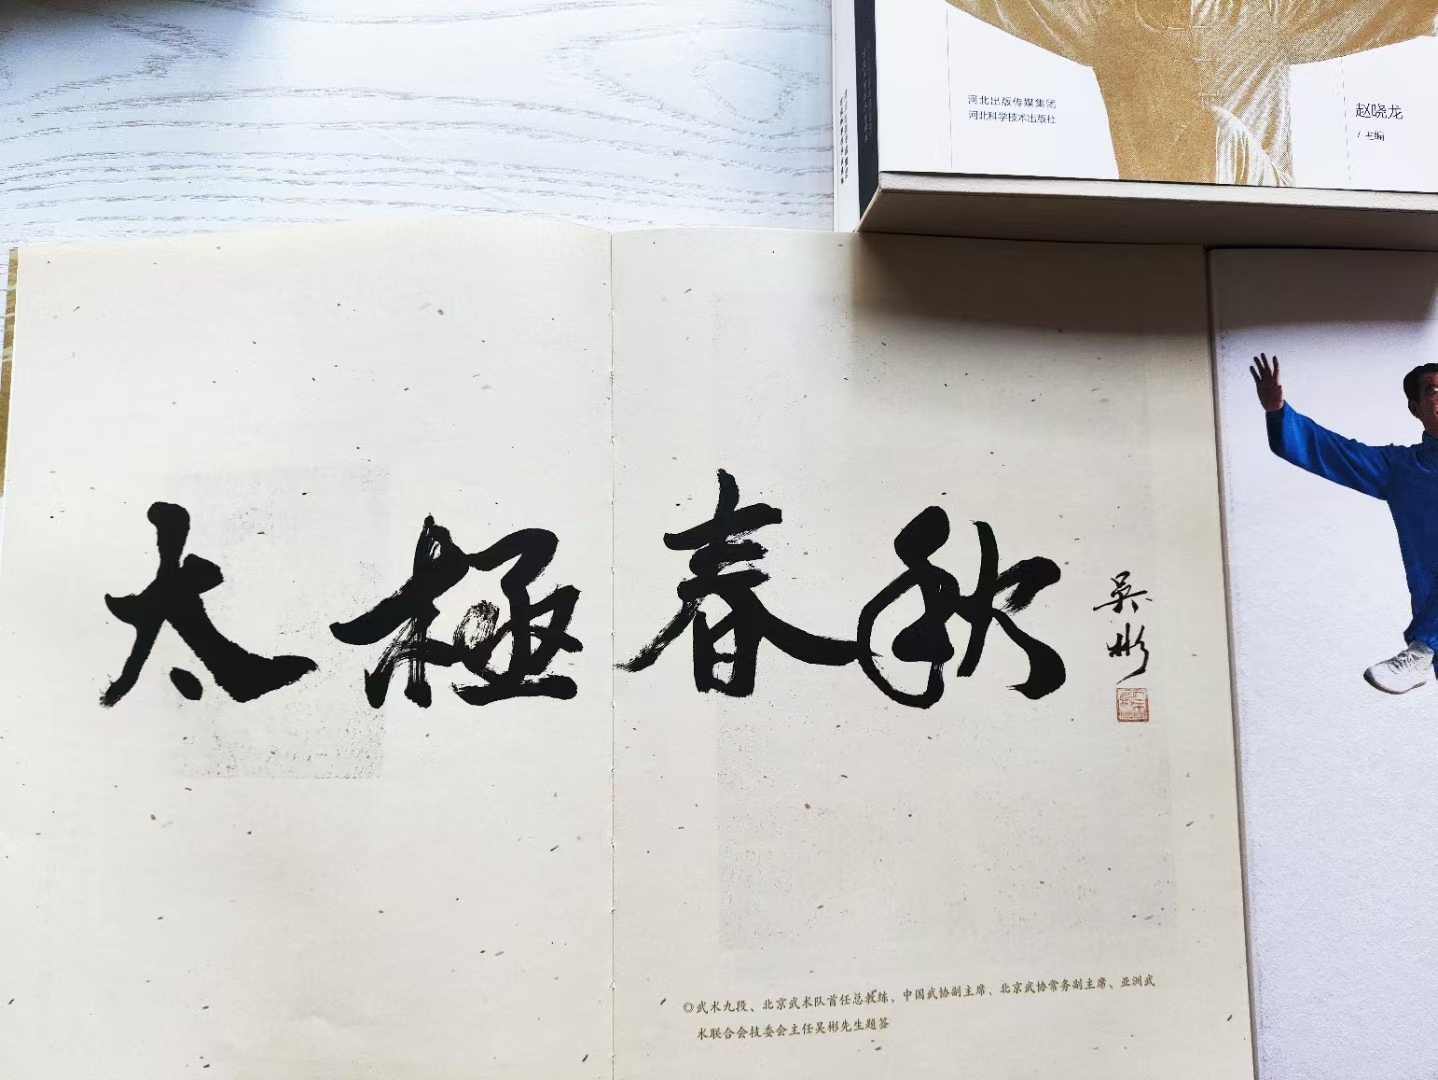 河北出版传媒集团
河北科学技术出版社
赵晓龙
/主编
太極春秋
吴彬
◎武术九段、北京武术队首任总教练、中国武协副主席、北京武协常务副主席、亚洲武
术联合会技委会主任吴彬先生题签